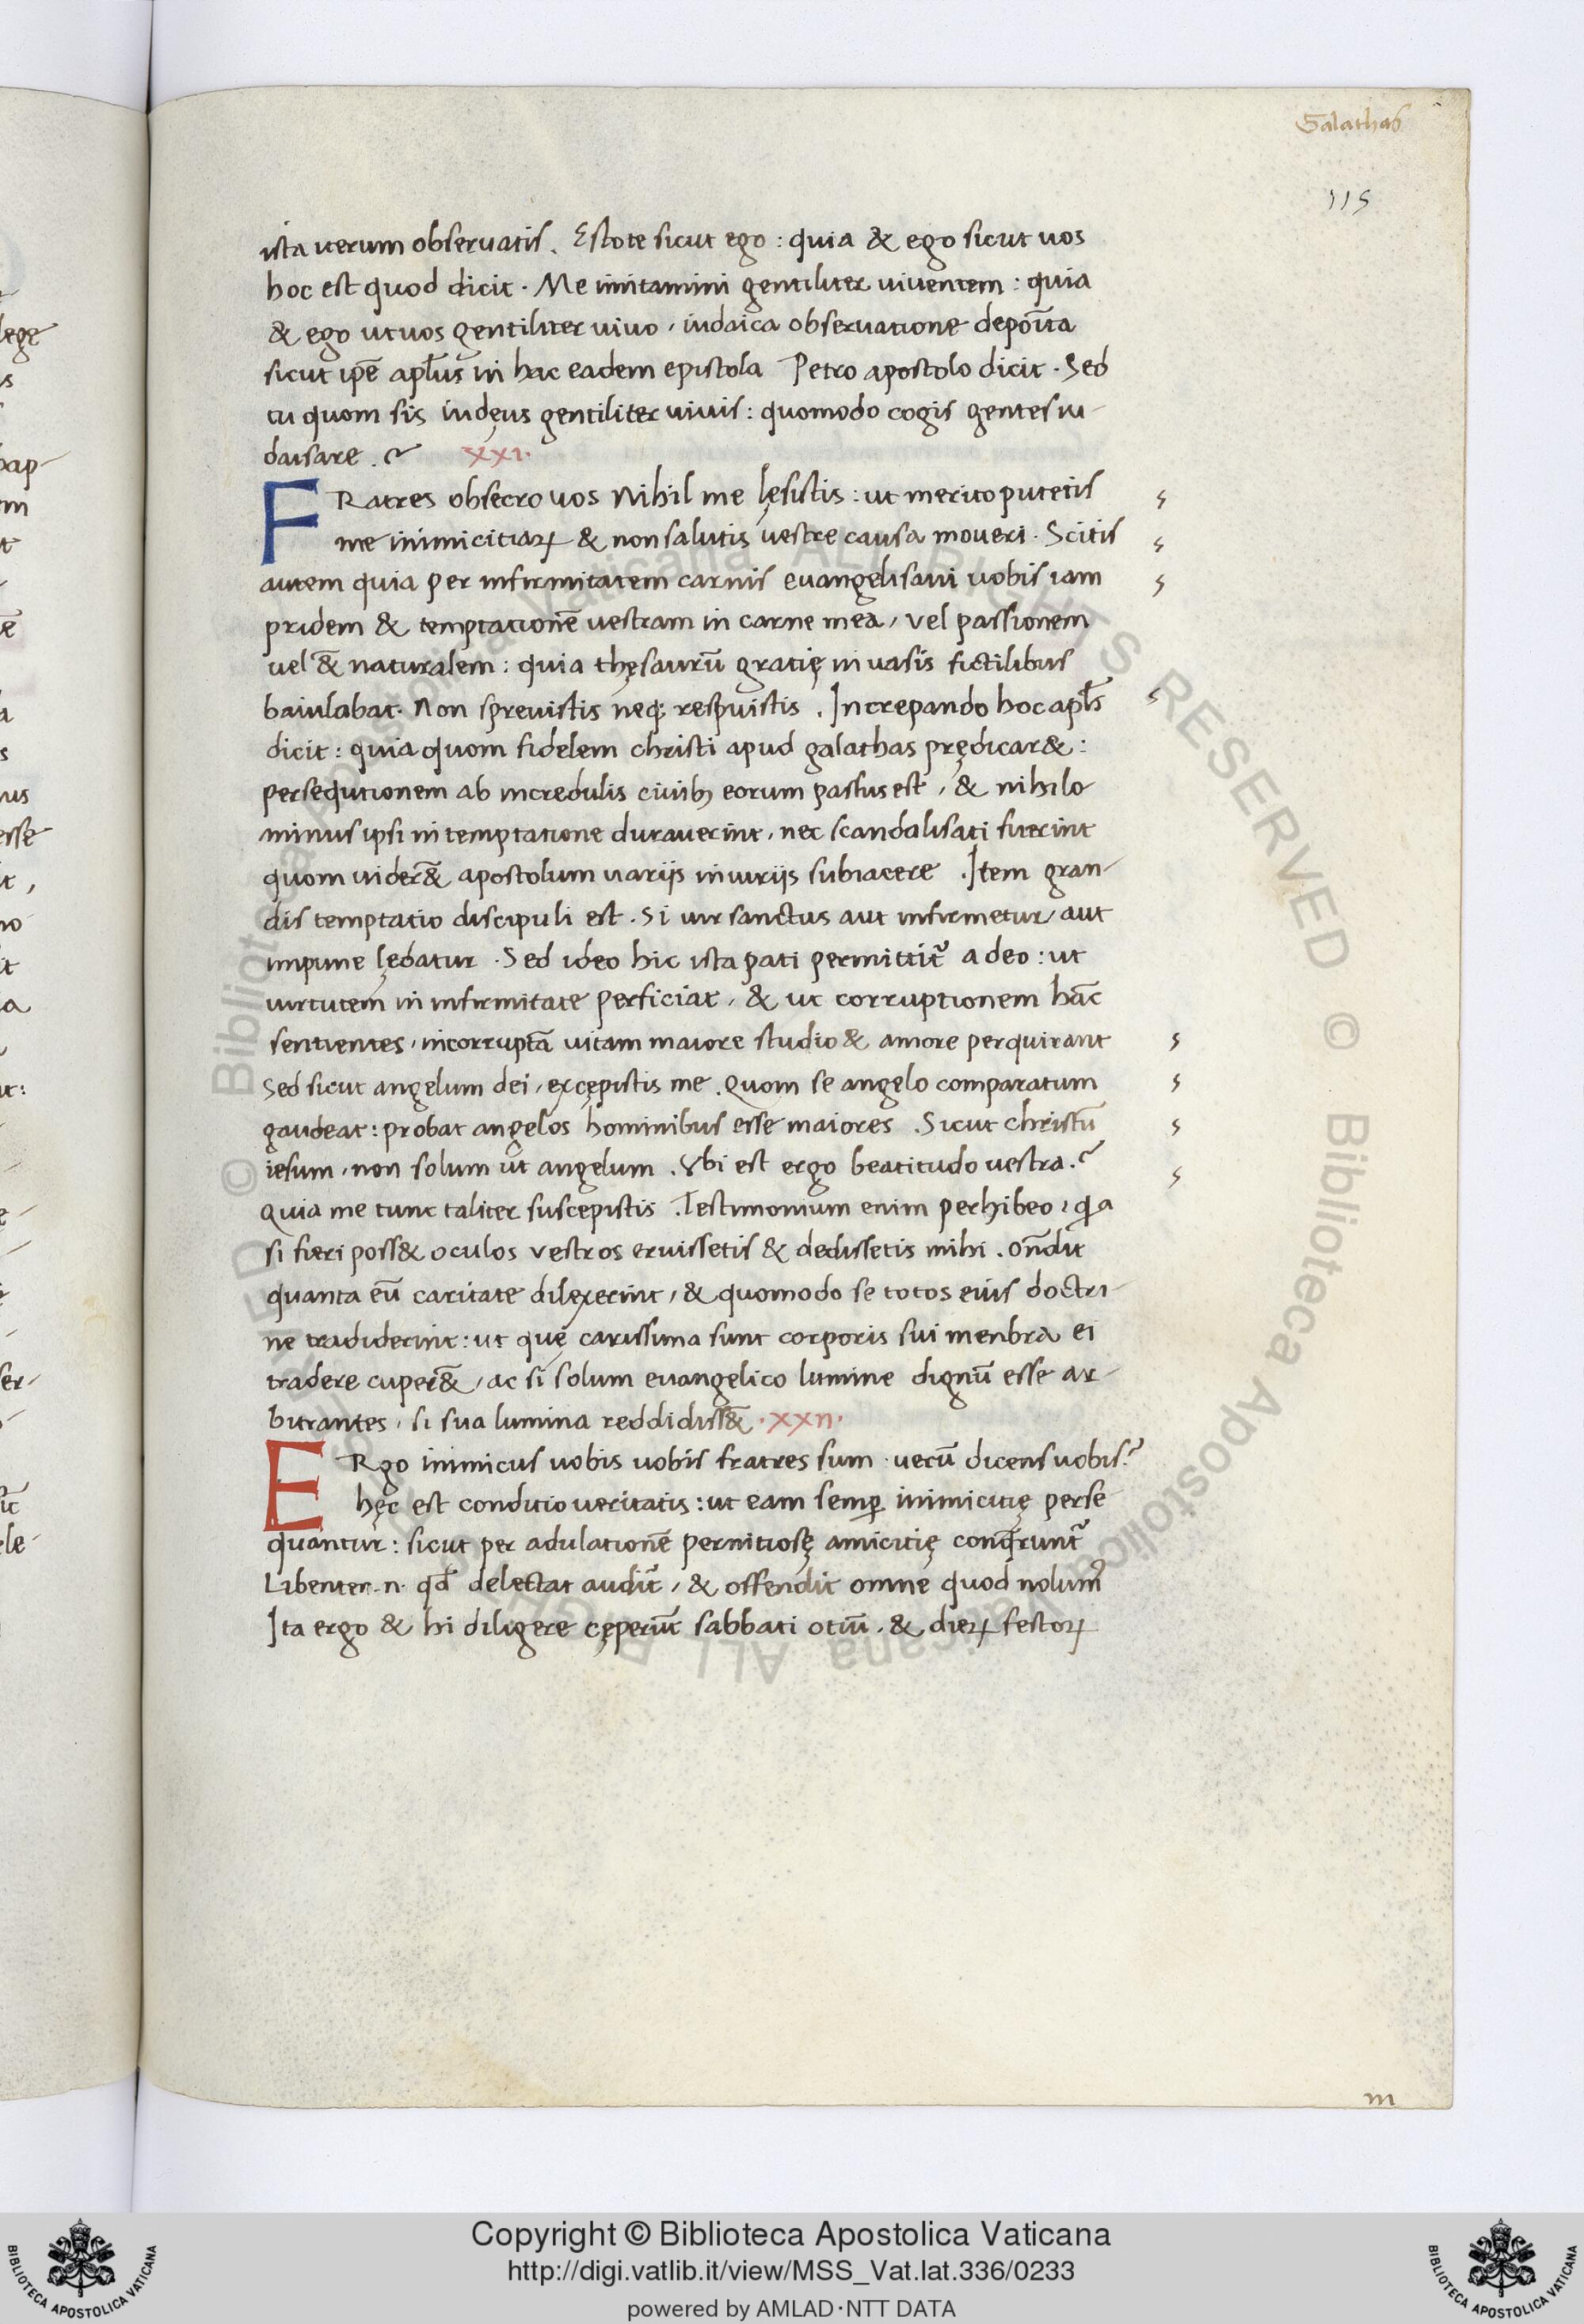 Galathas
115
ista iterum observatis. Estote sicut ego: quia & ego sicut vos
hoc est quod dicit. Me imitamini gentiliter viventem: quia
& ego ut vos gentiliter vivo, iudaica observatione depoi᷉ta
sicut ip̃e apl̃us in hac eadem epistola Petro apostolo dicit. Sed
tu quom sis iudęus gentiliter vivis: quomodo cogis gentes iu-
daisare.? xxi.
FRatres obsecro vos Nihil me lęsistis: ut merito putetis
me inimicitiaꝝ & non salutis vestre causa moveri. Scitis
autem quia per infirmitatem carnis evangelisavi vobis iam
pridem & temptationē vestram in carne mea, vel passionem
vel &̃ naturalem: quia thęsaurū gratię in vasis fictilibus
baiulabat. Non sprevistis neq; respuistis. Increpando hoc apl̃s
dicit: quia quom fidelem christi apud galathas prędicar&:
persequtionem ab incredulis civibꝫ eorum passus est, & nihilo
minus ipsi in temptatione duraverint, nec scandalisati fuerint
quom vider&̃ apostolum variis iniuriis subiacere. Item gran-
dis temptatio discipuli est. Si vir sanctus aut infirmetur, aut
impune lędatur. Sed ideo hic ista pati permittit᷉ a deo: ut
virtutem in infirmitate perficiat, & ut corruptionem hāc
sentientes, incorruptā vitam maiore studio & amore perquirant
Sed sicut angelum dei, excępistis me. Quom se angelo comparatum
gaudeat: probat angelos hominibus esse maiores. Sicut christū
iesum, non solum ut angelum. Ubi est ergo beatitudo vestra.?
Quia me tunc taliter suscepistis. Testimonium enim perhibeo, qa
si fieri poss& oculos vestros eruissetis & dedissetis mihi. On̄dit
quanta eū caritate dilexerint, & quomodo se totos eius doctri-
ne tradiderint: ut quę carissima sunt corporis sui menbra ei
tradere cuper&̃, ac si solum evangelico lumine dignū esse ar-
bitrantes, si sua lumina reddidiss&̃. xxii.
ERgo inimicus vobis vobis fratres sum verū dicens vobis.?
hęc est conditio veritatis: ut eam semꝑ inimicitię perse-
quantur: sicut per adulationē pernitiosę amicitię conqrunt᷉
Libenter .n. qd̃ delectat audit᷉, & offendit omne quod nolum᷒
Ita ergo & hi diligere cęperūt sabbati otiū, & dieꝝ festoꝝ
m
Copyright © Biblioteca Apostolica Vaticana
http://digi.vatlib.it/view/MSS_Vat.lat.336/0233
powered by AMLAD·NTT DATA